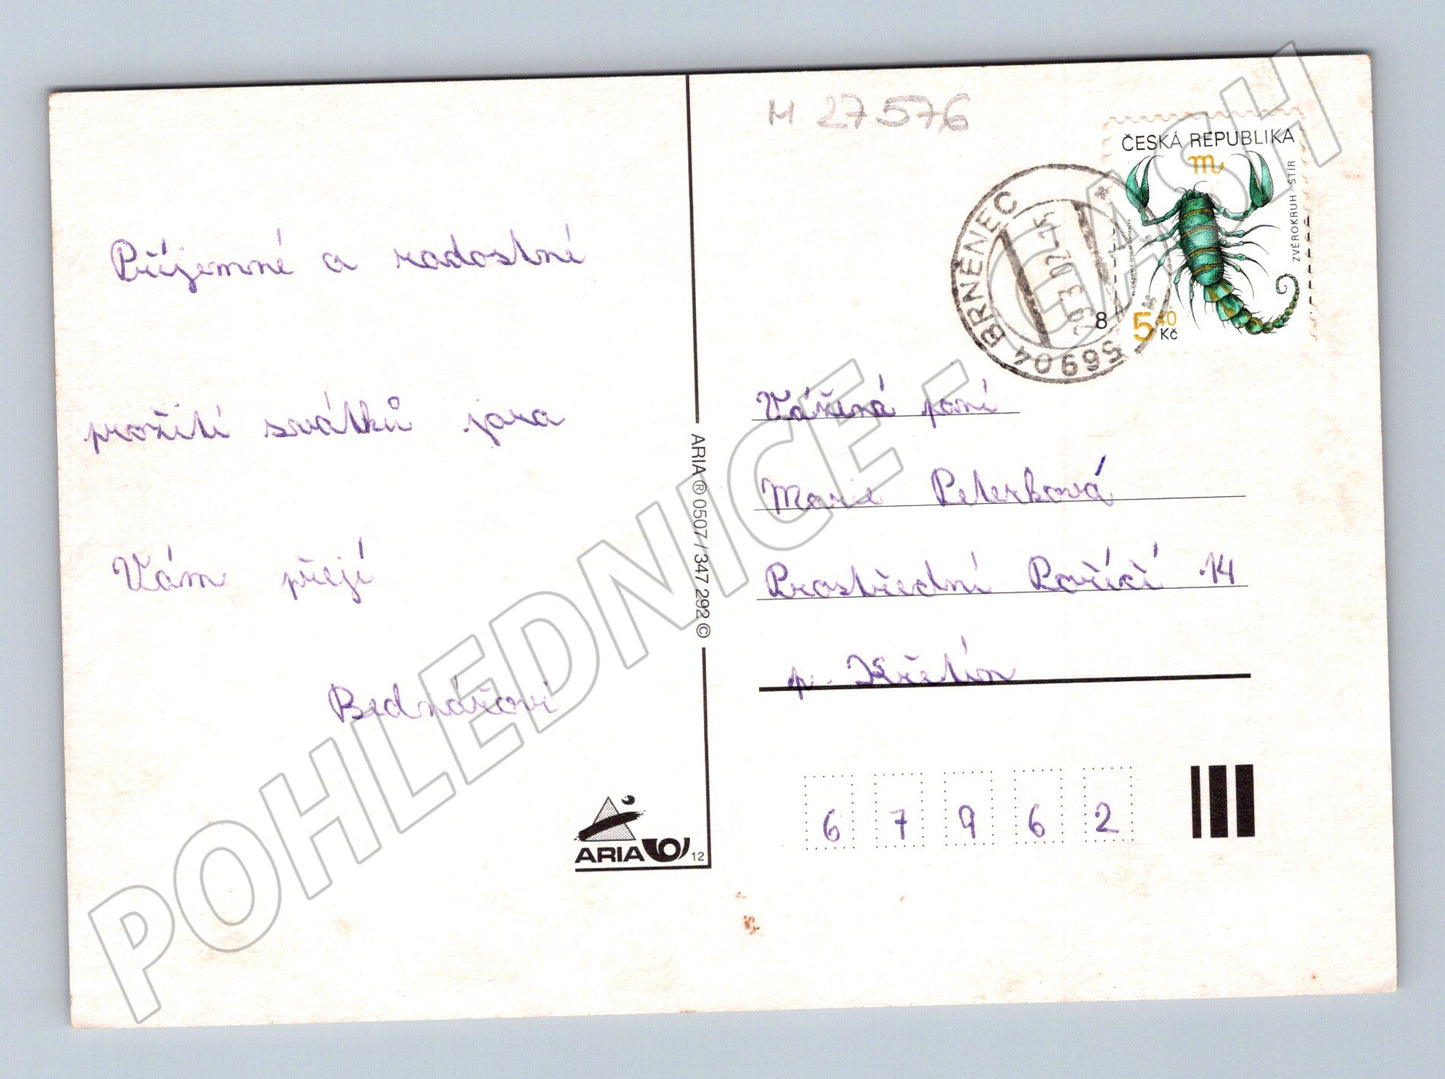 M 27576
ČESKÁ REPUBLIKA
ZVĚROKRUH - ŠTÍR
8
5 40
Kč
56904 BRNĚNEC
Příjemné a radostné
prožití svátků jara
Vám přejí
Bednářovi
ARIA® 0507 / 347 292 ©
ARIA
12
Vážená paní
Marie Peterková
Prostřední Poříčí 14
p. Křetín
6 7 9 6 2
POHLEDNICE - CASH